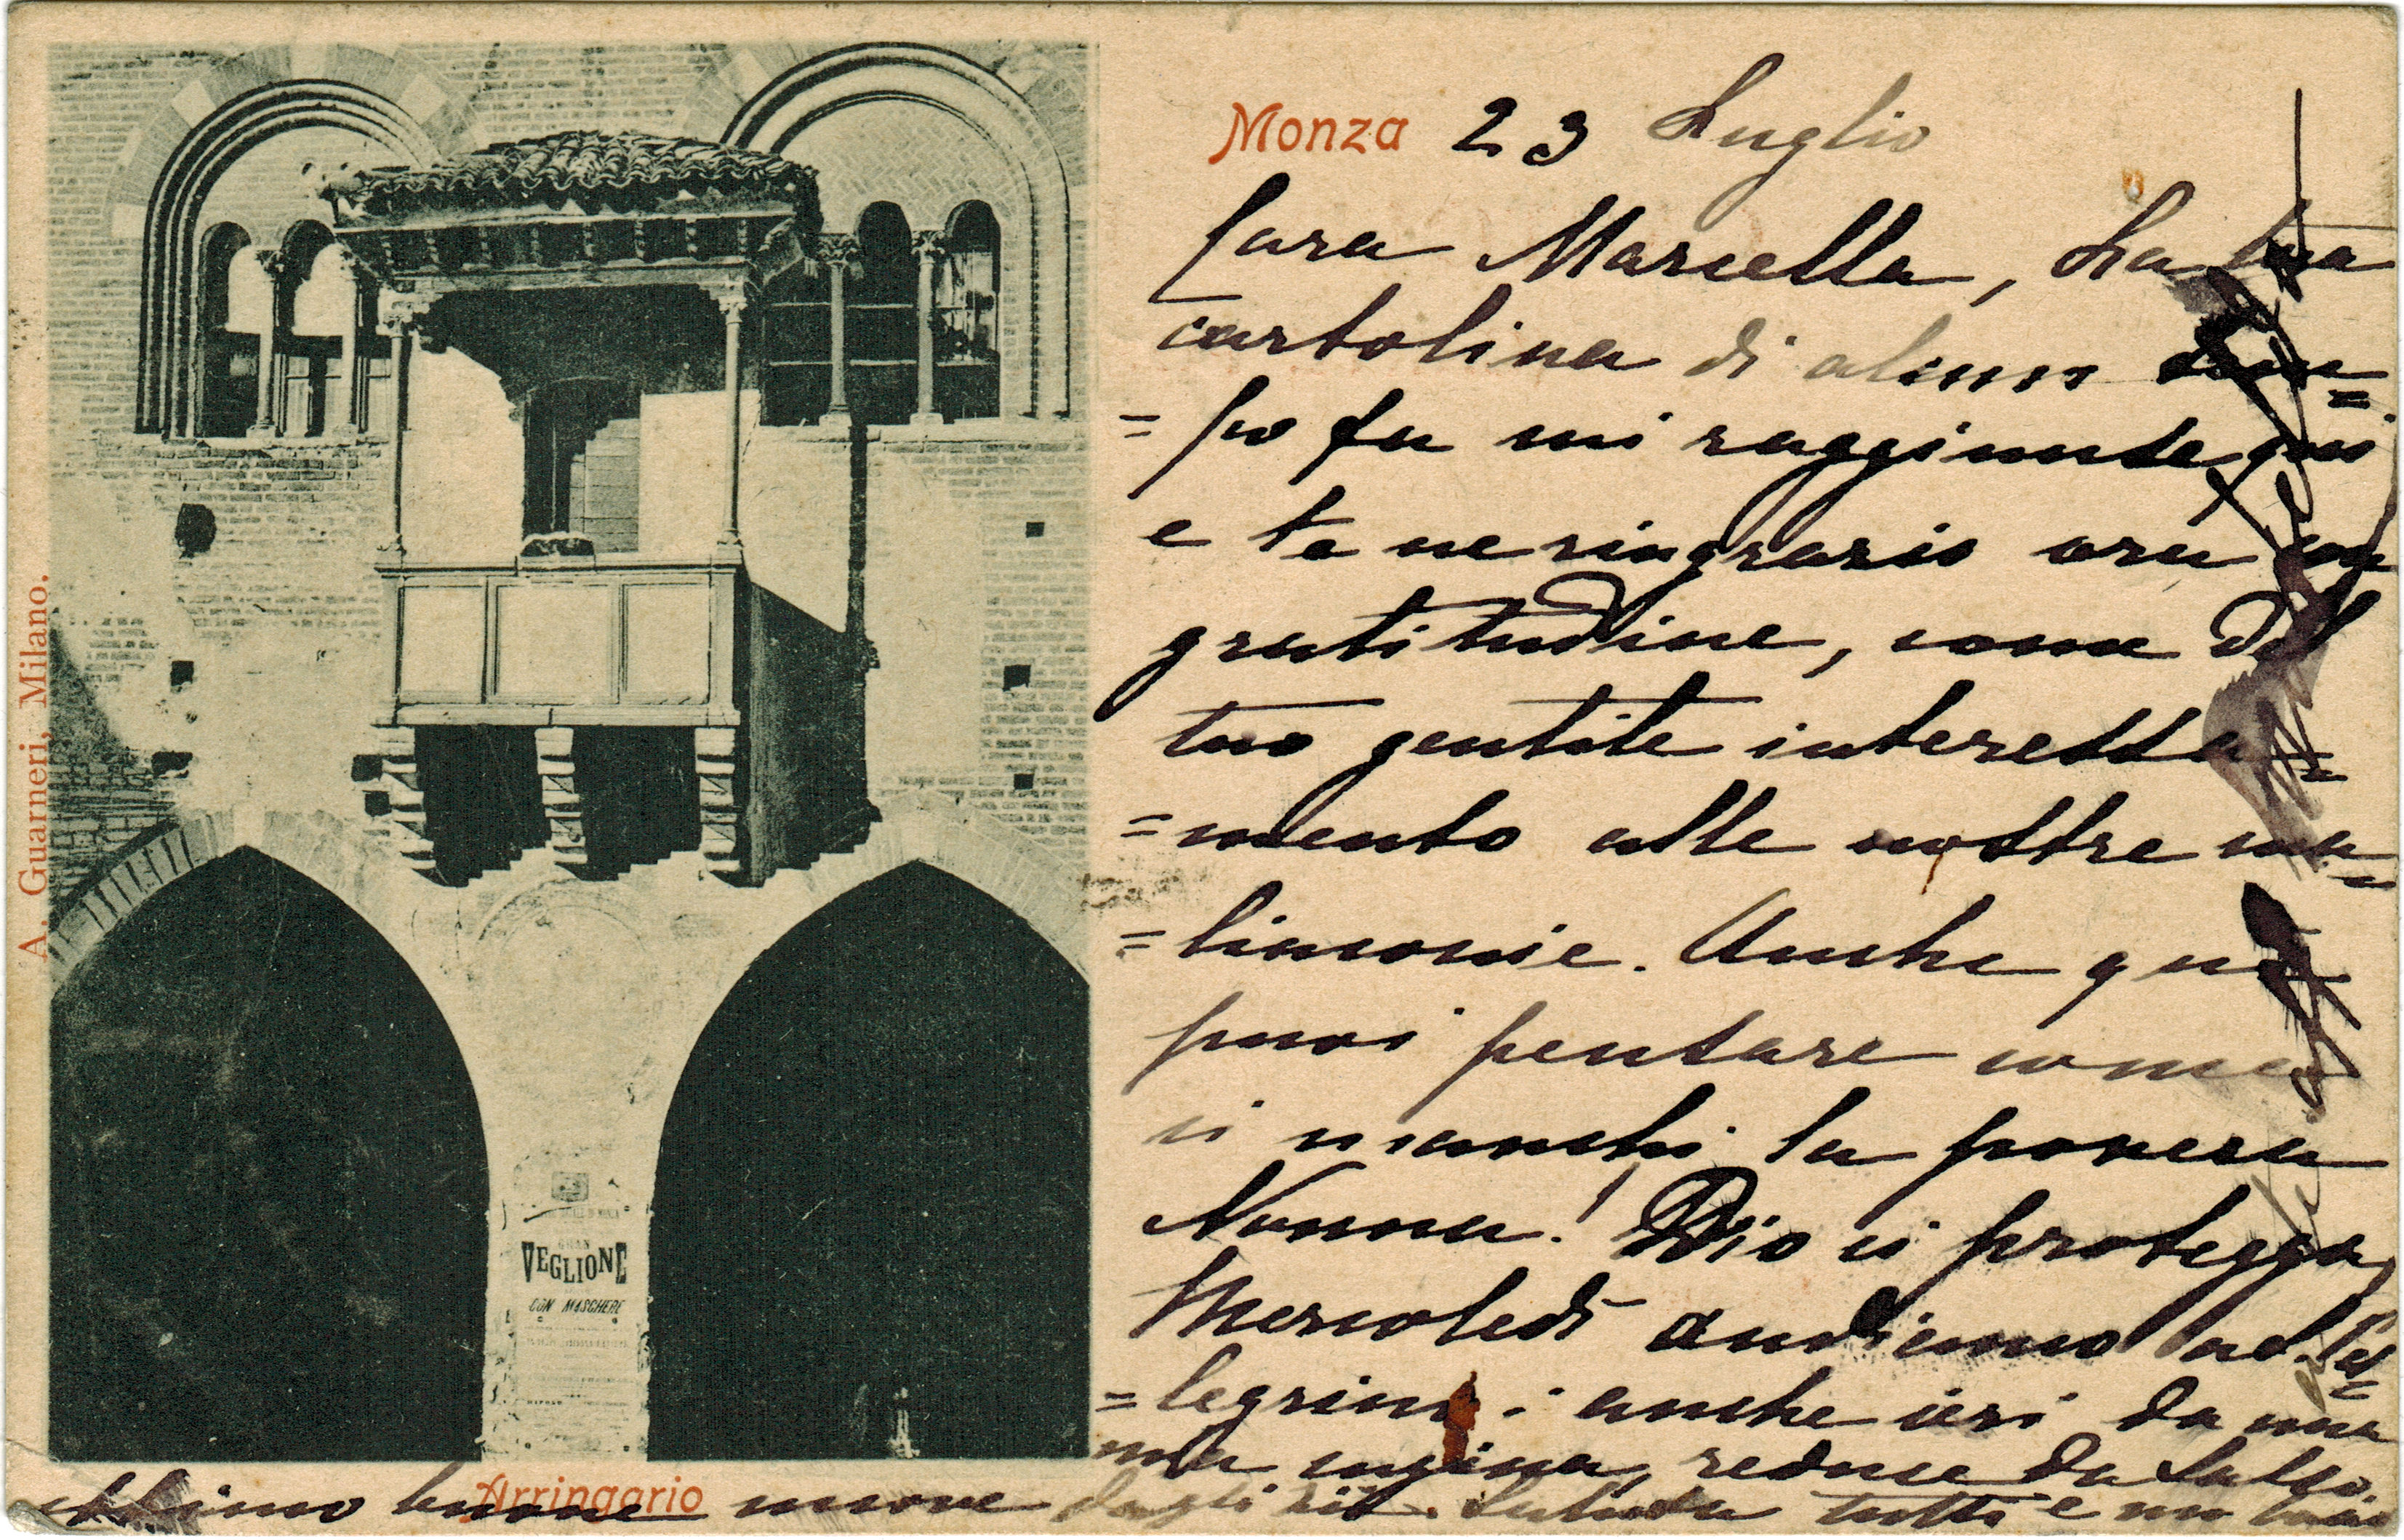 Monza 23 Luglio
Cara Marcella, La tua
cartolina di alcun tem=
=po fa mi raggiunse qui
e te ne ringrazio ora con
gratitudine, come del
tuo gentile interessa=
=mento alle nostre ma=
=linconie. Anche qui
puoi pensare come
ci manchi la povera
Nonna! Dio ci protegga
Mercoledì andiemo ad Pel=
=legrini: anche ieri da una
mia cugina, reduce da Salso,
ebbimo buone nuove dagli zii. Saluta tutti e un bacio
A. Guarneri, Milano.
GRAN
VEGLIONE
CON MASCHERE
Arringario